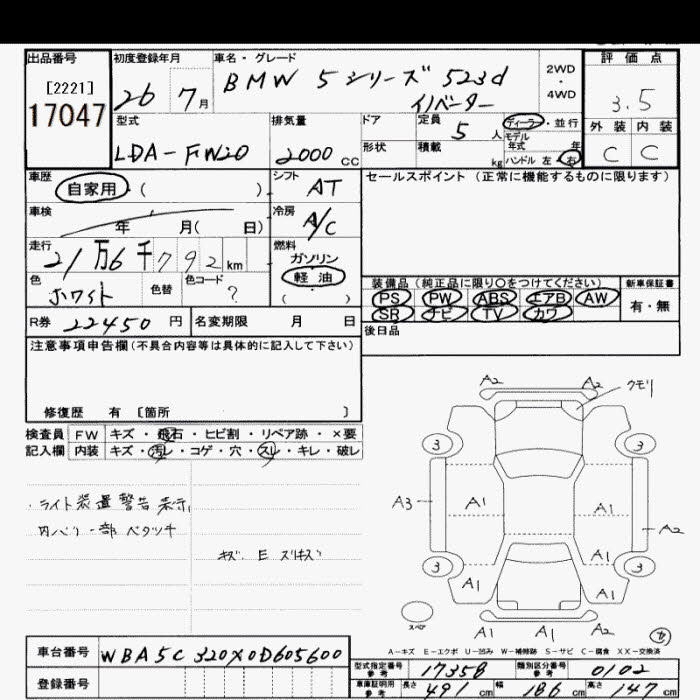 出品番号 初度登録年月 車名・グレード 評価点
[2221]
17047
26 7月 BMW 5シリーズ 523d 2WD
・
4WD
3.5
型式 排気量 ドア 定員 5人 ディーラー・並行
モデル
年式 年
外装 内装
LDA-FW20 2000cc 形状 積載 kg ハンドル 左 右 C C
車歴 自家用 ( ) シフト AT セールスポイント (正常に機能するものに限ります)
車検 年 月( 日) 冷房 A/C
走行 21万6千792km 燃料 ガソリン
軽油
( )
色 ホワイト 色替 色コード ?
装備品 (純正品に限り○をつけてください) 新車保証書
PS PW ABS エアB AW 有・無
SR ナビ TV カワ
R券 22450円 名変期限 月 日 後日品
注意事項申告欄(不具合内容等は具体的に記入して下さい)
修復歴 有 [箇所 ]
検査員 FW キズ・飛石・ヒビ割・リペア跡・×要
記入欄 内装 キズ・汚レ・コゲ・穴・スレ・キレ・破レ
・ライト装置警告表示
内ハリ一部ベタツキ
A2 A2 クモリ
3 3
A3 A1 A1
A2
A1
3 3
A1 A1
スペア A1 A1 A2
A-キズ E-エクボ U-凹み W-補修跡 S-サビ C-腐食 XX-交換済
車台番号 WBA5C320X0D605600
型式指定番号
参考
17358 類別区分番号
参考
0102
登録番号 車庫証明用
参考
長さ 491cm 幅 186cm 高さ 147cm